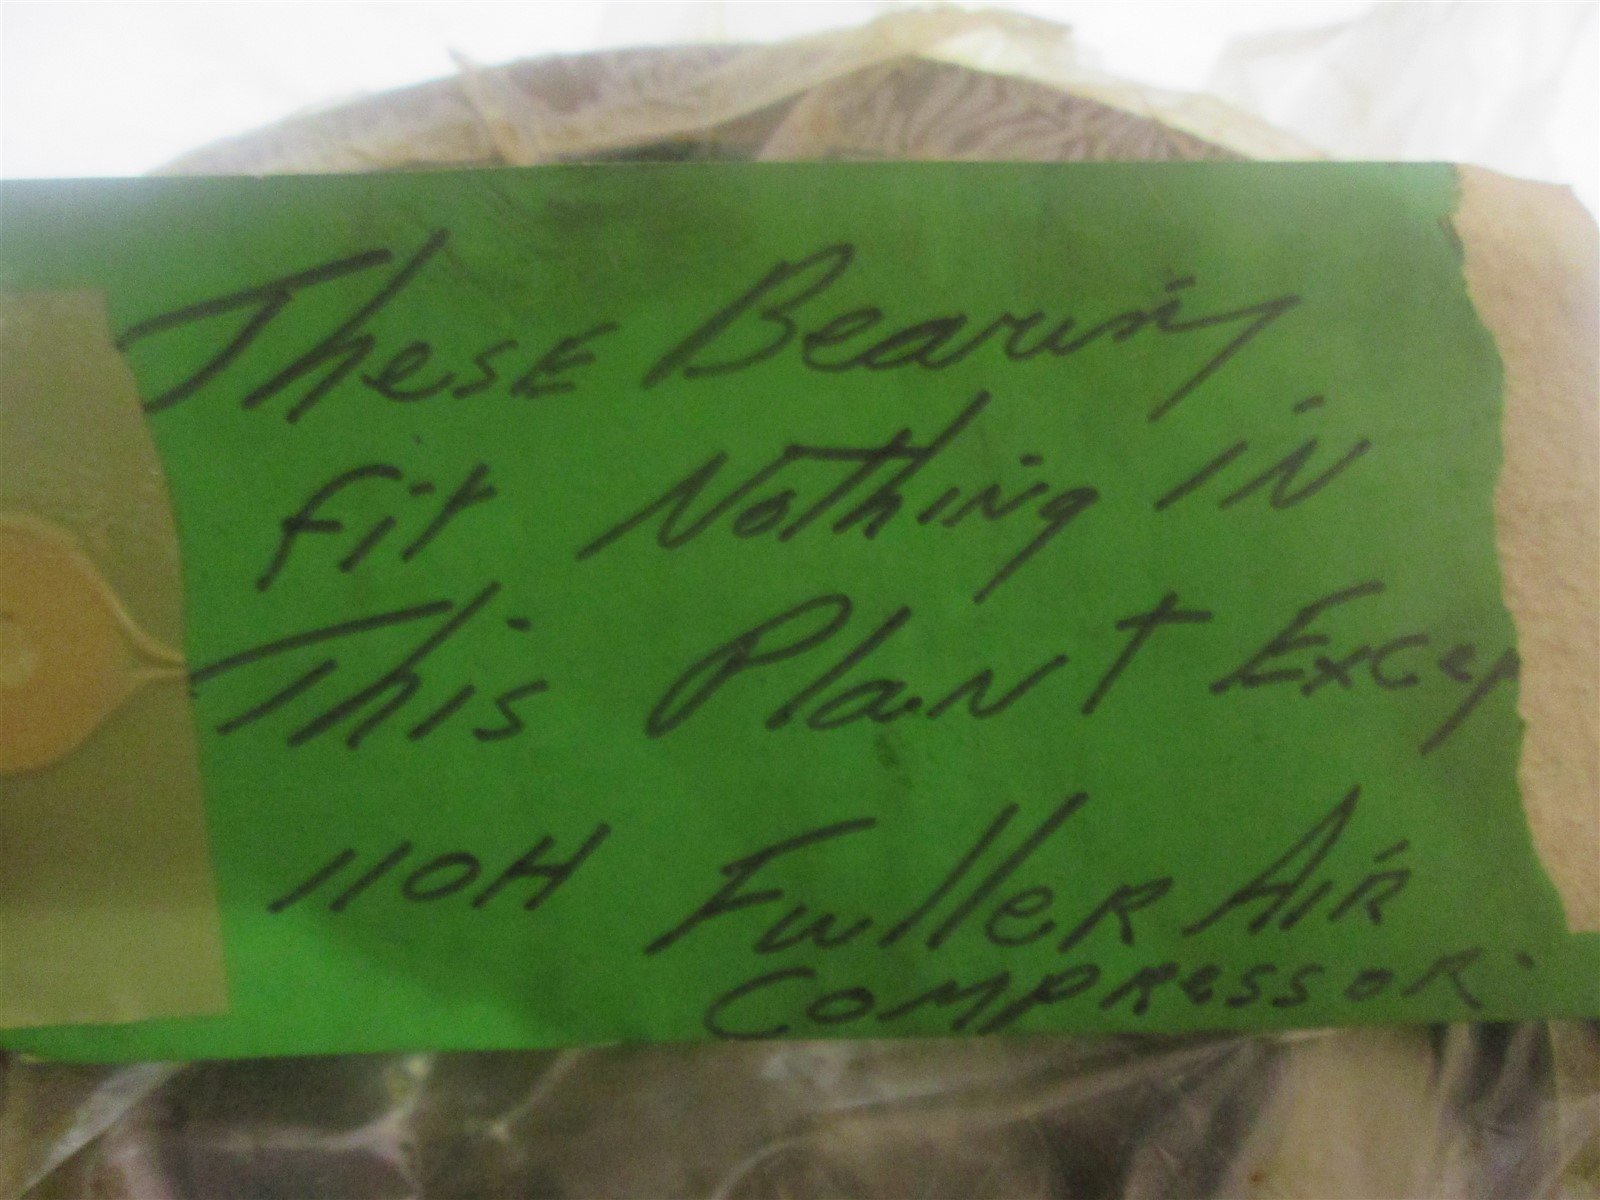 These Bearing
Fit Nothing in
This Plant Excep
110H Fuller Air
Compressor.